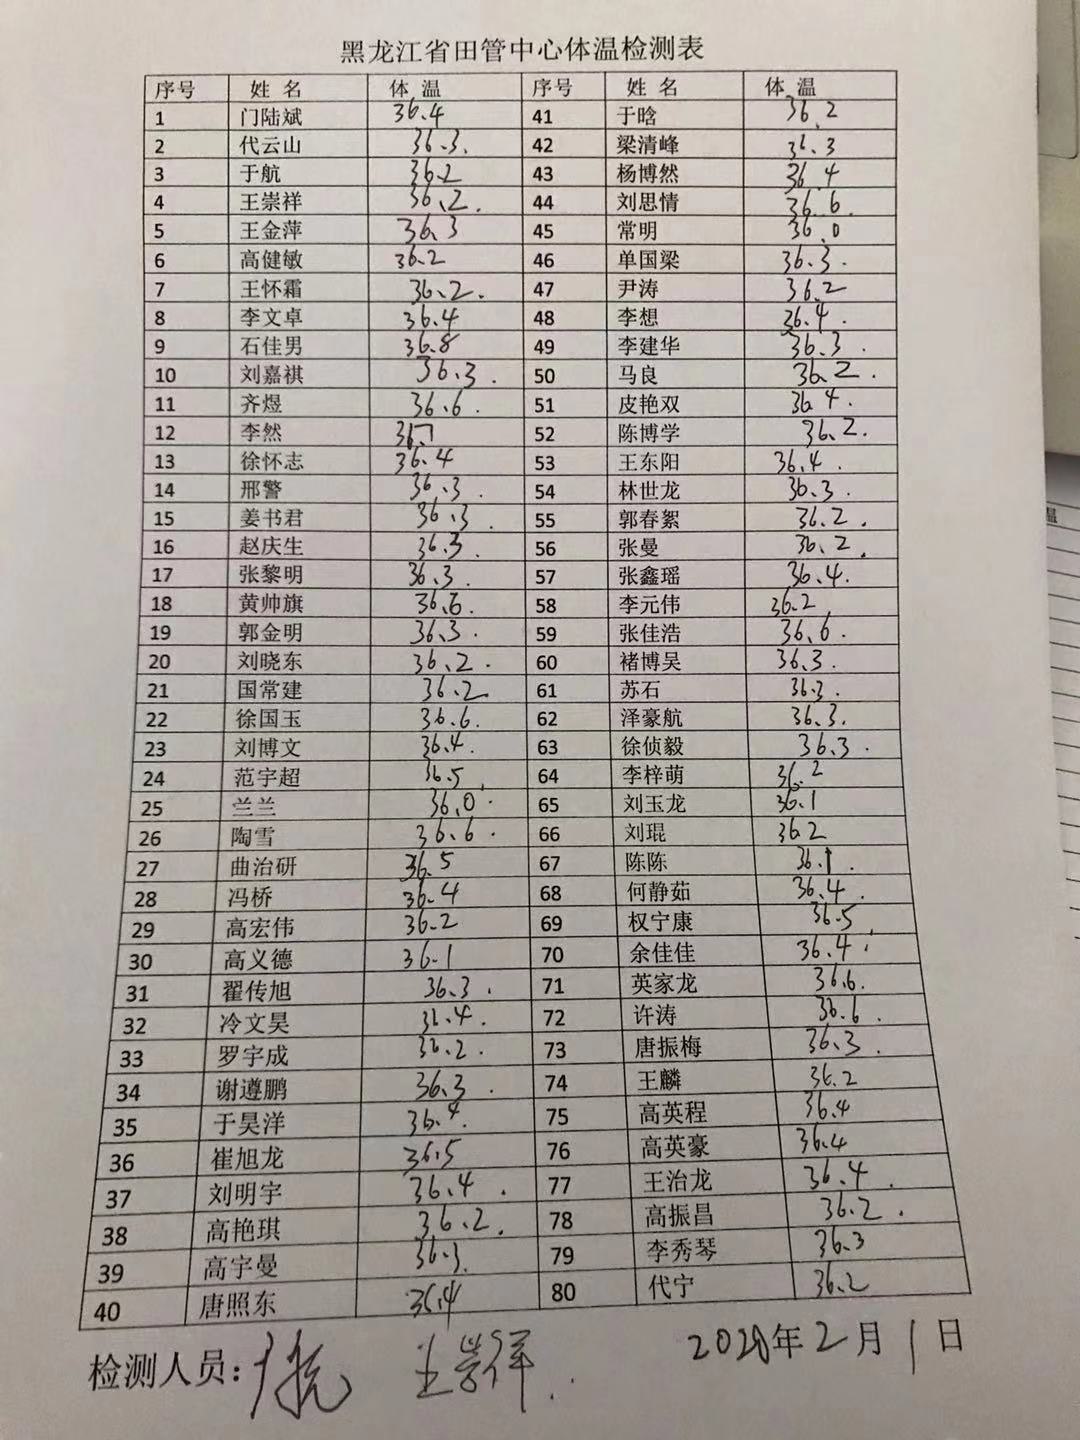 黑龙江省田管中心体温检测表
序号 姓名 体温 序号 姓名 体温
1 门陆斌 36.4 41 于晗 36.2
2 代云山 36.3. 42 梁清峰 36.3
3 于航 36.2 43 杨博然 36.4
4 王崇祥 36.2. 44 刘思情 36.6.
5 王金萍 36.3 45 常明 36.0
6 高健敏 36.2 46 单国梁 36.3.
7 王怀霜 36.2. 47 尹涛 36.2
8 李文卓 36.4 48 李想 36.4.
9 石佳男 36.8 49 李建华 36.3.
10 刘嘉祺 36.3. 50 马良 36.2.
11 齐煜 36.6. 51 皮艳双 36.4.
12 李然 36.7 52 陈博学 36.2.
13 徐怀志 36.4 53 王东阳 36.4.
14 邢警 36.3. 54 林世龙 36.3.
15 姜书君 36.3. 55 郭春絮 36.2.
16 赵庆生 36.3. 56 张曼 36.2.
17 张黎明 36.3. 57 张鑫瑶 36.4.
18 黄帅旗 36.6. 58 李元伟 36.2
19 郭金明 36.3. 59 张佳浩 36.6.
20 刘晓东 36.2. 60 褚博吴 36.3.
21 国常建 36.2 61 苏石 36.3.
22 徐国玉 36.6. 62 泽豪航 36.3.
23 刘博文 36.4. 63 徐侦毅 36.3.
24 范宇超 36.5 64 李梓萌 36.2
25 兰兰 36.0. 65 刘玉龙 36.1
26 陶雪 36.6. 66 刘琨 36.2
27 曲治研 36.5 67 陈陈 36.1.
28 冯桥 36.4 68 何静茹 36.4.
29 高宏伟 36.2 69 权宁康 36.5
30 高义德 36.1 70 余佳佳 36.4
31 翟传旭 36.3. 71 英家龙 36.6.
32 冷文昊 36.4. 72 许涛 36.6.
33 罗宇成 36.2. 73 唐振梅 36.3.
34 谢遵鹏 36.3. 74 王麟 36.2
35 于昊洋 36.4. 75 高英程 36.4
36 崔旭龙 36.5 76 高英豪 36.4
37 刘明宇 36.4. 77 王治龙 36.4.
38 高艳琪 36.2. 78 高振昌 36.2.
39 高宇曼 36.3. 79 李秀琴 36.3
40 唐照东 36.4 80 代宁 36.2
检测人员: 于航 王崇祥 2020年2月1日
温